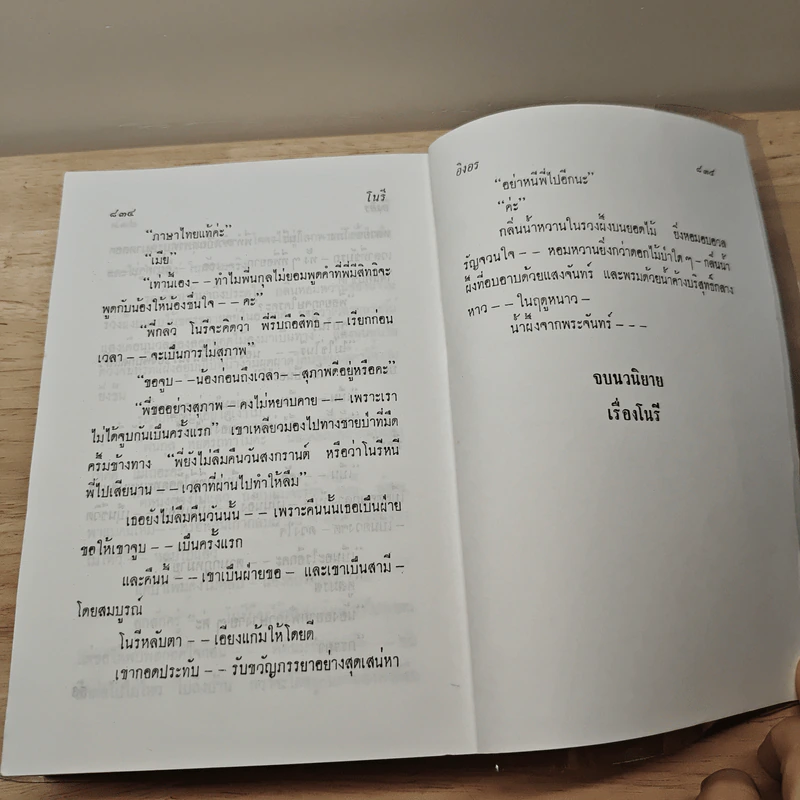 ๘๓๔ โนรี
“ภาษาไทยแท้ค่ะ”
“เมีย”
“เท่านี้เอง – – ทำไมพี่นกุลไม่ยอมพูดคำที่พี่มีสิทธิจะ
พูดกับน้องให้น้องชื่นใจ – – คะ”
“พี่กลัว โนรีจะคิดว่า พี่รีบถือสิทธิ – – เรียกก่อน
เวลา – – จะเป็นการไม่สุภาพ”
“ขอจูบ – –น้องก่อนถึงเวลา– –สุภาพดีอยู่หรือคะ”
“พี่ขออย่างสุภาพ – คงไม่หยาบคาย – – เพราะเรา
ไม่ได้จูบกันเป็นครั้งแรก” เขาเหลียวมองไปทางชายป่าที่มืด
ครึ้มข้างทาง “พี่ยังไม่ลืมคืนวันสงกรานต์ หรือว่าโนรีหนี
พี่ไปเสียนาน – – เวลาที่ผ่านไปทำให้ลืม”
เธอยังไม่ลืมคืนวันนั้น – – เพราะคืนนั้นเธอเป็นฝ่าย
ขอให้เขาจูบ – – เป็นครั้งแรก
และคืนนี้ – – เขาเป็นฝ่ายขอ – และเขาเป็นสามี –
โดยสมบูรณ์
โนรีหลับตา – – เอียงแก้มให้โดยดี
เขากอดประทับ – – รับขวัญภรรยาอย่างสุดเสน่หา
อิงอร ๘๓๕
“อย่าหนีพี่ไปอีกนะ”
“ค่ะ”
กลิ่นน้ำหวานในรวงผึ้งบนยอดไม้ ยิ่งหอมอบอวล
รัญจวนใจ – – หอมหวานยิ่งกว่าดอกไม้ป่าใด ๆ – กลิ่นน้ำ
ผึ้งที่อบอาบด้วยแสงจันทร์ และพรมด้วยน้ำค้างบริสุทธิ์กลาง
หาว – – ในฤดูหนาว –
น้ำผึ้งจากพระจันทร์ – – –
จบนวนิยาย
เรื่องโนรี